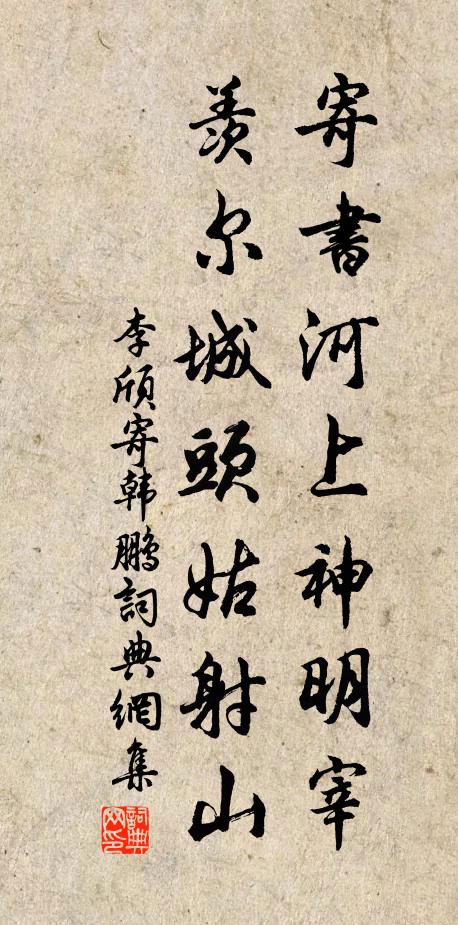 寄書河上神明宰
羨尔城頭姑射山
李頎寄韩鵬詞典網集
詞典网印